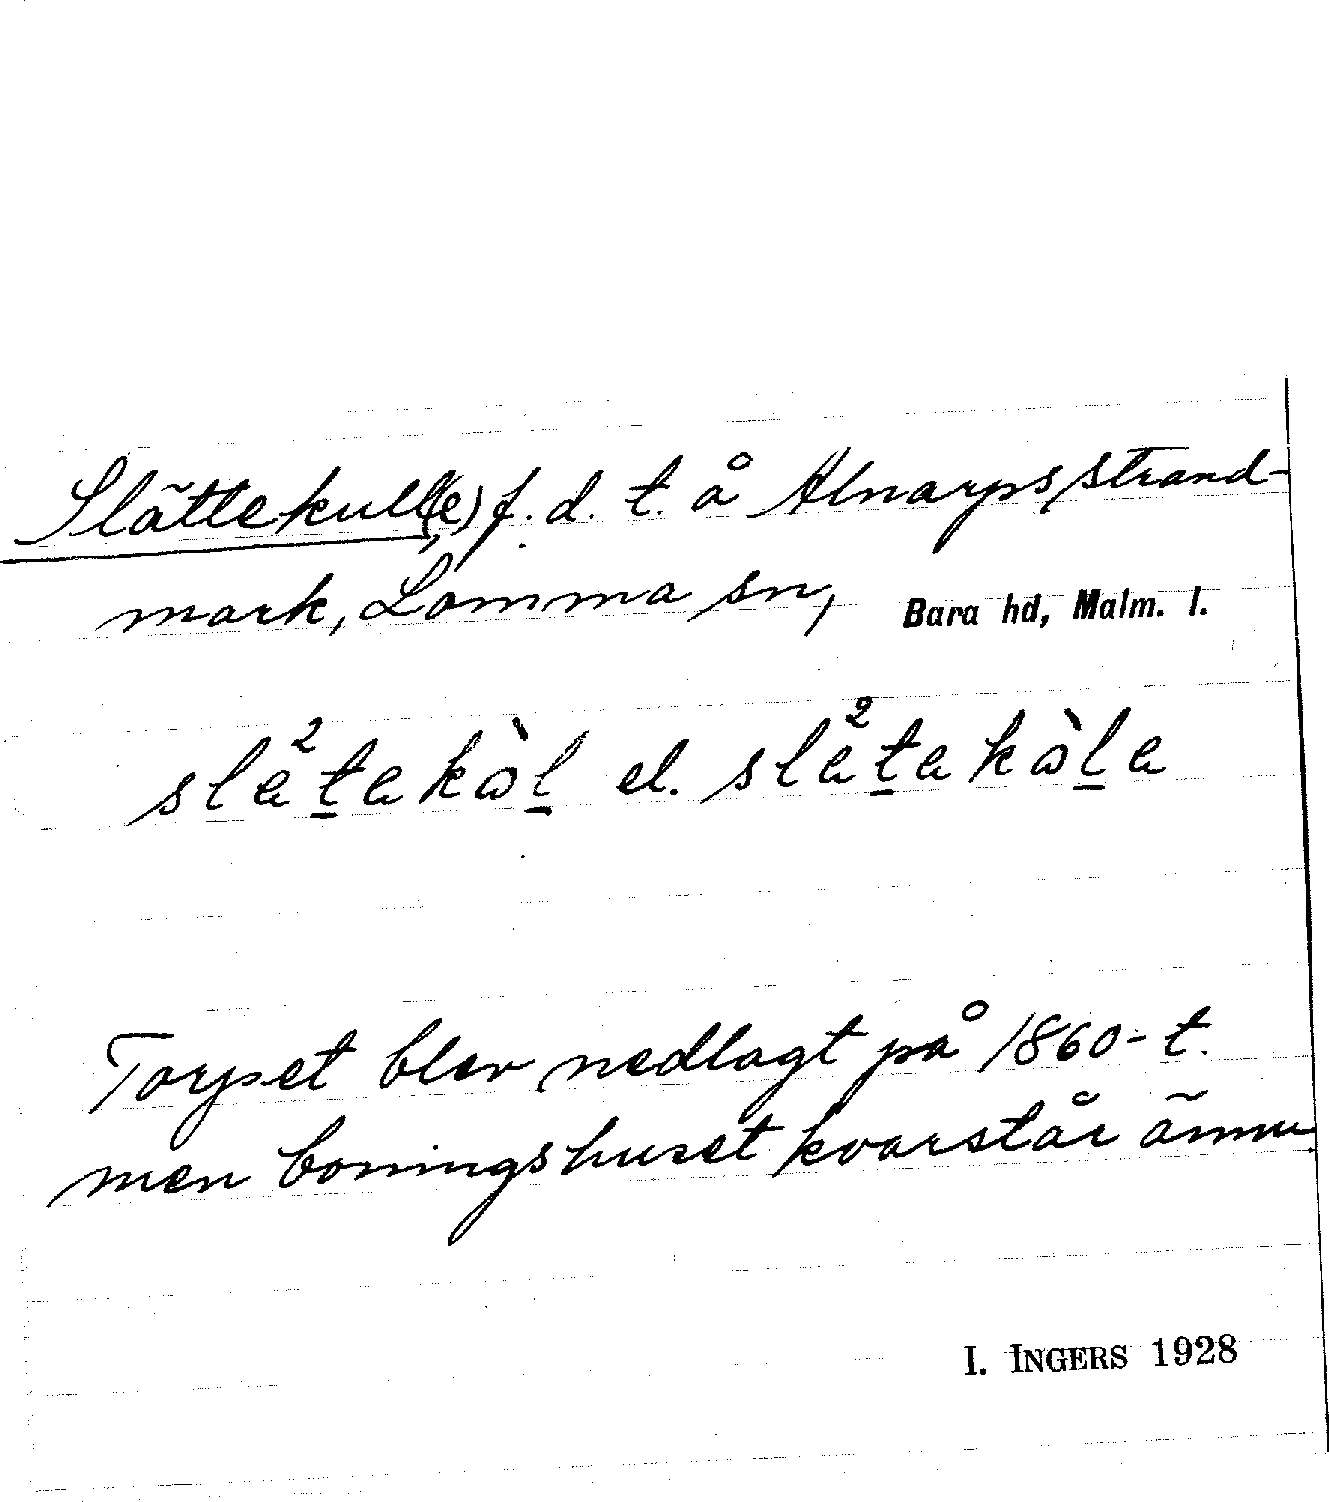 Slättekull(e), f. d. t. å Alnarps strand-
mark, Lomma sn, Bara hd, Malm. l.
slät²ekòl el. slät²ekòle
Torpet blev nedlagt på 1860-t.
men boningshuset kvarstår ännu
I. INGERS 1928